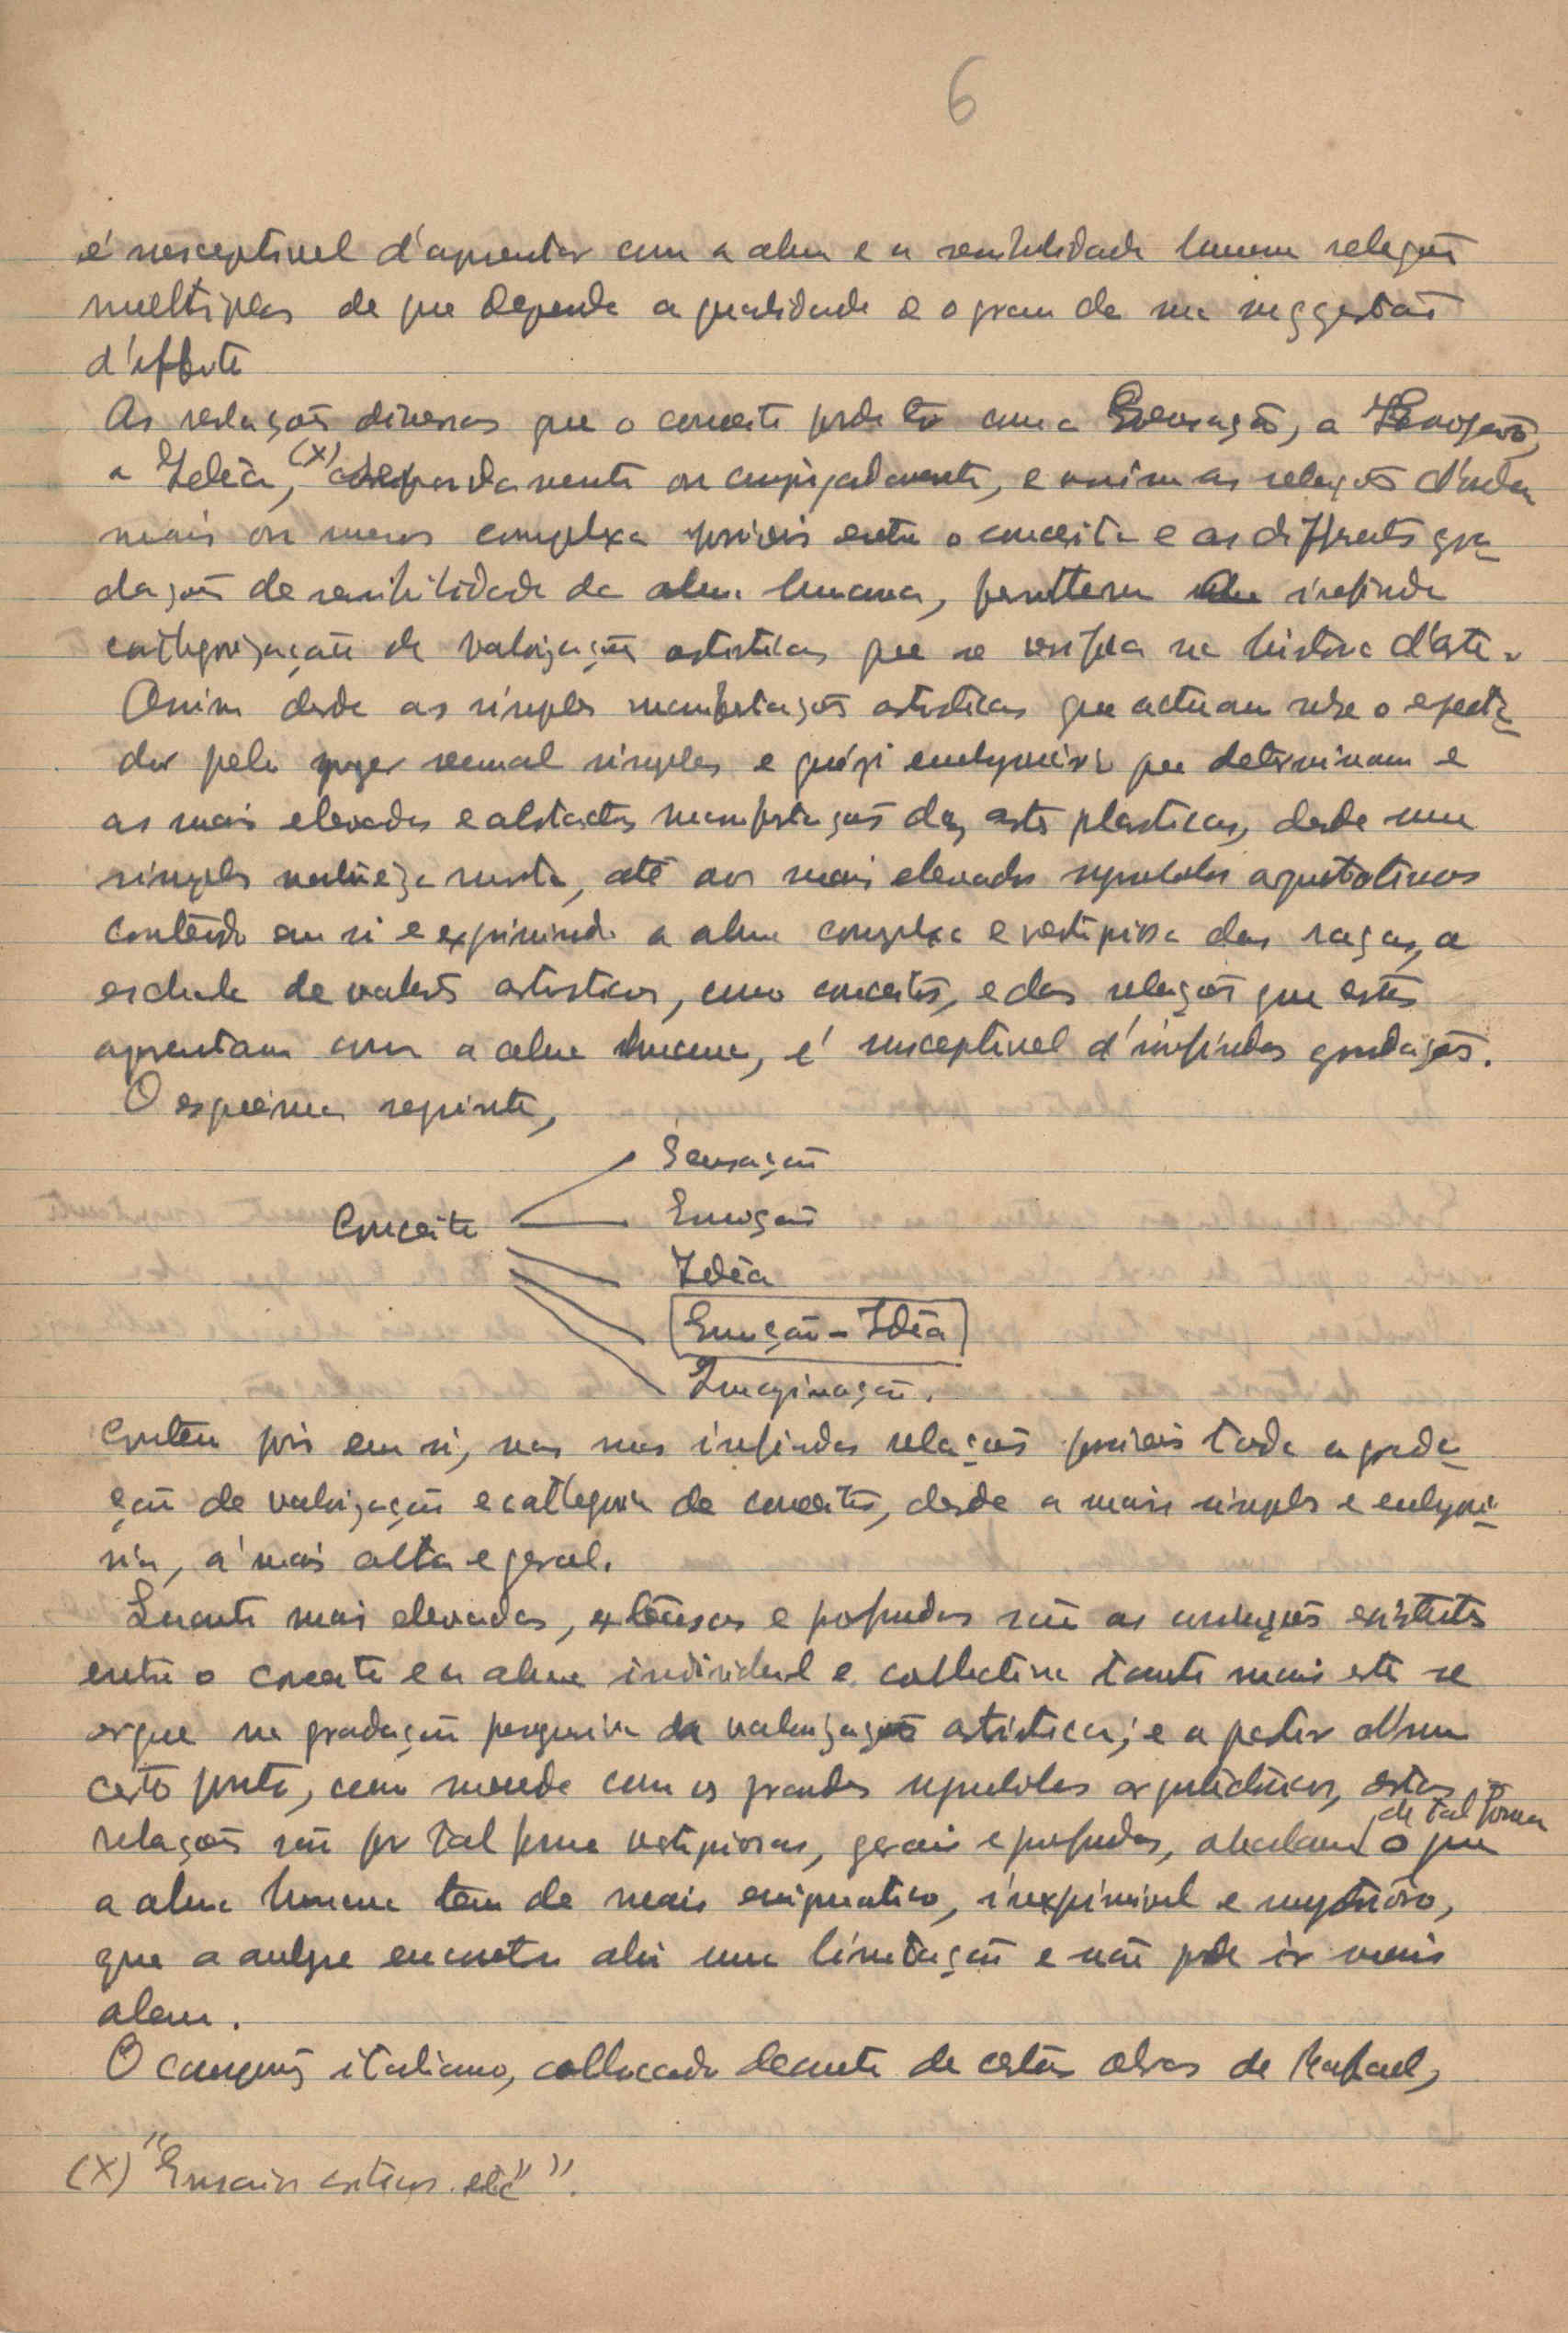 6
é susceptivel d'apresentar com a alma e a sensibilidade humana relações
multiplas de que depende a qualidade e o grau da sua suggestão
d'arte
As relações diversas que o conceito pode ter com a Sensação, a Emoção,
a Idêa, (X) separadamente ou conjugadamente, e assim as relações d'ordem
mais ou menos complexa possiveis entre o conceito e as differentes gra-
dações de sensibilidade da alma humana, permittem infinda
cathegorização de valorização artisticas que se verifica na historia d'arte.
Assim desde as simples manifestações artisticas que actuam sobre o especta-
dor pelo prazer sensual simples e quási embryonário que determinam e
as mais elevadas e abstractas manifestações das artes plasticas, desde uma
simples natureza morta, até aos mais elevados symbolos
contendo em si e exprimindo a alma complexa e vertiginosa das raças, a
eschala de valores artisticos, como conceitos, e das relações que estes
apresentam com a alma humana, é susceptivel d'infindas gradações.
O esquêma seguinte,
Conceito
Sensação
Emoção
Idêa
Emoção - Idêa
Imaginação.
Contem pois em si, nas suas infindas relações possiveis toda a grada-
ção de valorização e cathegoria de conceitos, desde a mais simples e embryoná-
ria, á mais alta e geral.
Quanto mais elevadas, extensas e profundas são as relações existentes
entre o conceito e a alma individual e collectiva tanto mais este se
ergue na gradação progressiva da valorização artistica; e a partir d'um
certo ponto, como succede com os grandes symbolos, estas
relações são por tal forma vertiginosas, gerais e profundas, abalam de tal forma o que
a alma humana tem de mais enigmatico, inexprimivel e mysterioso,
que a analyse encontra ahi uma limitação e não pode ir mais
alem.
O camponês italiano, collocado deante de certas obras de Rafael,
(X) "Ensaios criticos etc".